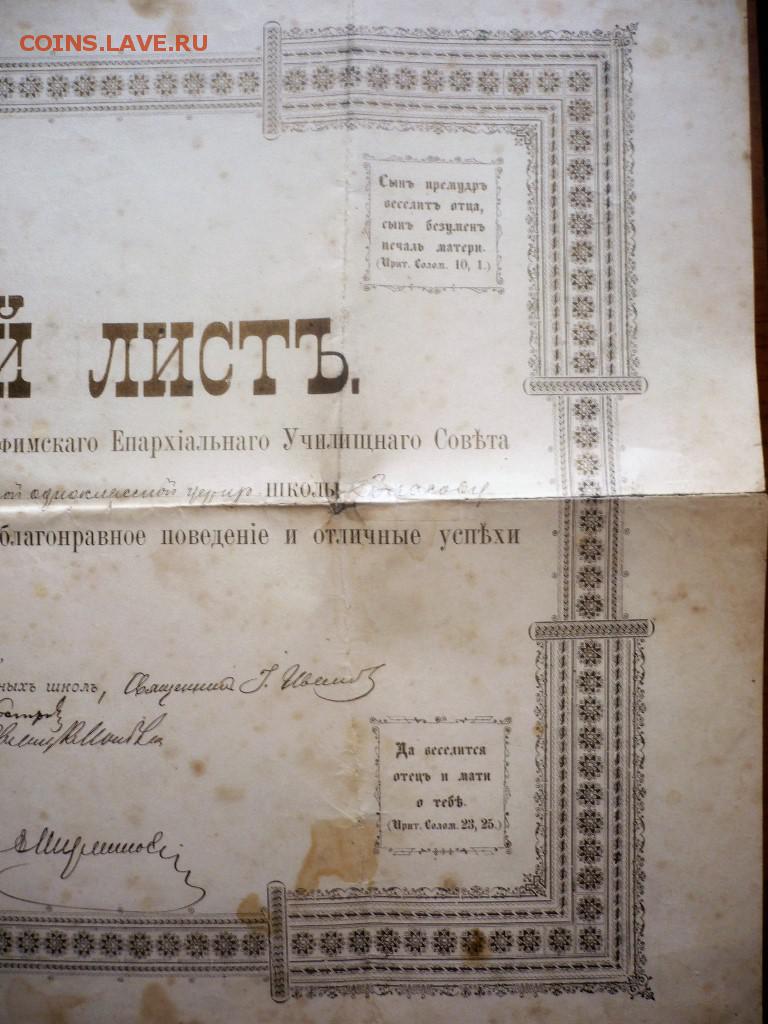 COINS.LAVE.RU
Сынъ премудръ
веселитъ отца,
сынъ безуменъ
печаль матери.
(Прит. Солом. 10, 1.)
Й ЛИСТЪ.
фимскаго Епархіальнаго Училищнаго Совѣта
ой одноклассной школы
благонравное поведеніе и отличные успѣхи
ныхъ школъ, Священникъ Г.
Да веселится
отецъ и мати
о тебѣ.
(Прит. Солом. 23, 25.)